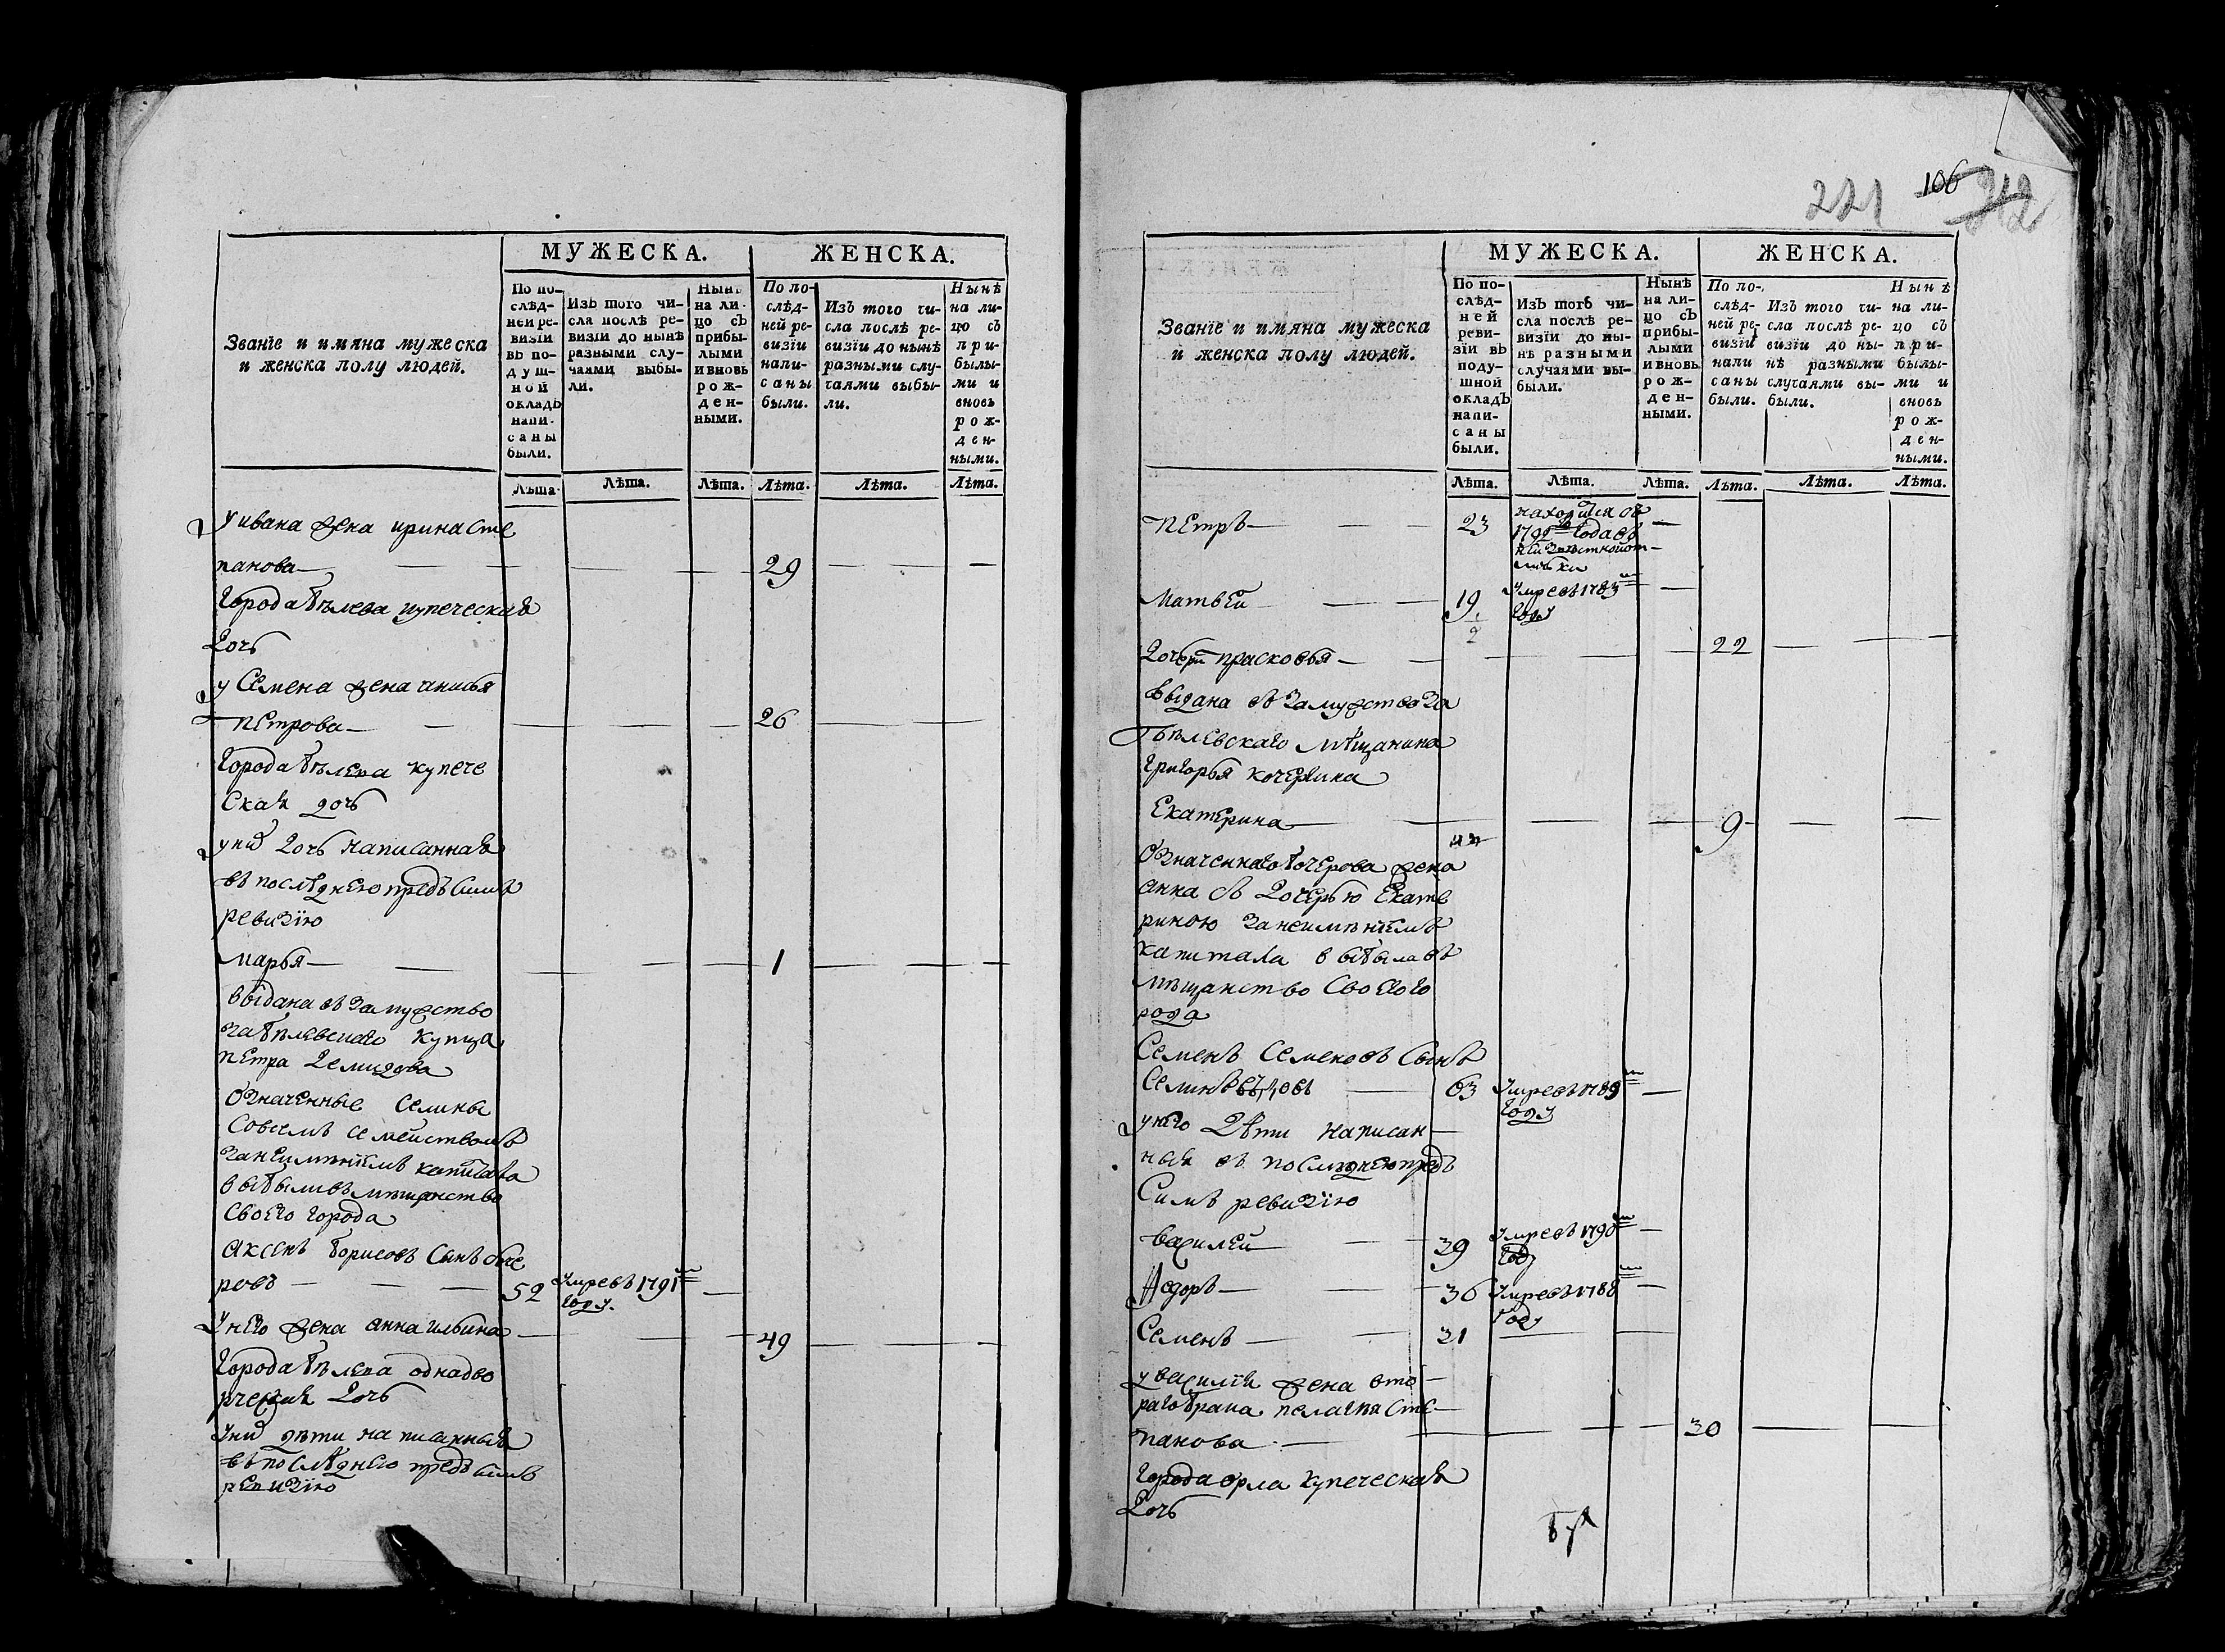 МУЖЕСКА.
ЖЕНСКА.
Званїе и имяна мужеска
и женска полу людей.
По по-
слѣд-
ней ре-
визїи
въ по-
душ-
ной
окладъ
напи-
саны
были.
Изъ того чи-
сла послѣ ре-
визїи до нынѣ
разными слу-
чаями выбы-
ли.
Нынѣ
на ли-
цо съ
прибы-
лыми
и вновь
рож-
ден-
ными.
По по-
слѣд-
ней ре-
визїи
напи-
саны
были.
Изъ того чи-
сла послѣ ре-
визїи до нынѣ
разными слу-
чаями выбы-
ли.
Нынѣ
на ли-
цо съ
при-
былы-
ми и
вновь
рож-
ден-
ными.
Лѣта.
Лѣта.
Лѣта.
Лѣта.
Лѣта.
Лѣта.
у ивана жена ирина Сте
панова 29
города бѣлева купеческая
дочь
у Семена жена анисья
петрова 26
города бѣлева купече
ская дочь
у ней дочь написанная
въ последнею предъ симъ
ревизїю
марья 1
выдана въ замужство
за бѣлевскаго купца
петра демидова
означенные Селины
Совсемъ семействомъ
за неимѣнїемъ капитала
выбыли въ мѣщанство
своего города
аксенъ борисовъ Сынъ боче
ровъ 52 умре въ 1791 м
году.
у него жена анна ильина 49
города бѣлева однадво
рческая дочь
у ней дѣти написанныя
въ последнею предъ симъ
ревизїю
221 106 212
МУЖЕСКА.
ЖЕНСКА.
Званїе и имяна мужеска
и женска полу людей.
По по-
слѣд-
ней
реви-
зїи въ
поду-
шной
окладъ
напи-
саны
были.
Изъ того чи-
сла послѣ ре-
визїи до ны-
нѣ разными
случаями вы-
были.
Нынѣ
на ли-
цо съ
прибы-
лыми
и вновь
рож-
ден-
ными.
По по-
слѣд-
ней ре-
визїи
напи-
саны
были.
Изъ того чи-
сла послѣ ре-
визїи до ны-
нѣ разными
случаями вы-
были.
Нынѣ
на ли-
цо съ
при-
былы-
ми и
вновь
рож-
ден-
ными.
Лѣта.
Лѣта.
Лѣта.
Лѣта.
Лѣта.
Лѣта.
петръ 23 находится съ
1792 го года въ
неизвѣстной от
лучки
матвей 19 1/2 умре въ 1783 м
году
дочери прасковья 22
выдана въ замужство за
бѣлевскаго мѣщанина
григорья кочергина
Екатерина 9
означеннаго бочерова жена
анна съ дочерью Екате
риною за неимѣнїемъ
капитала выбыла въ
мѣщанство своего
рода
Семенъ Семеновъ Сынъ
63 умре въ 1789 м
году
у него дѣти написан
ныя въ последнею предъ
Симъ ревизїю
василей 39 умре въ 1790 м
году
Федоръ 36 умре въ 1788 м
году
Семенъ 31
у василья жена вто
раго брака пелагея Сте
панова 30
города орла купеческая
дочь